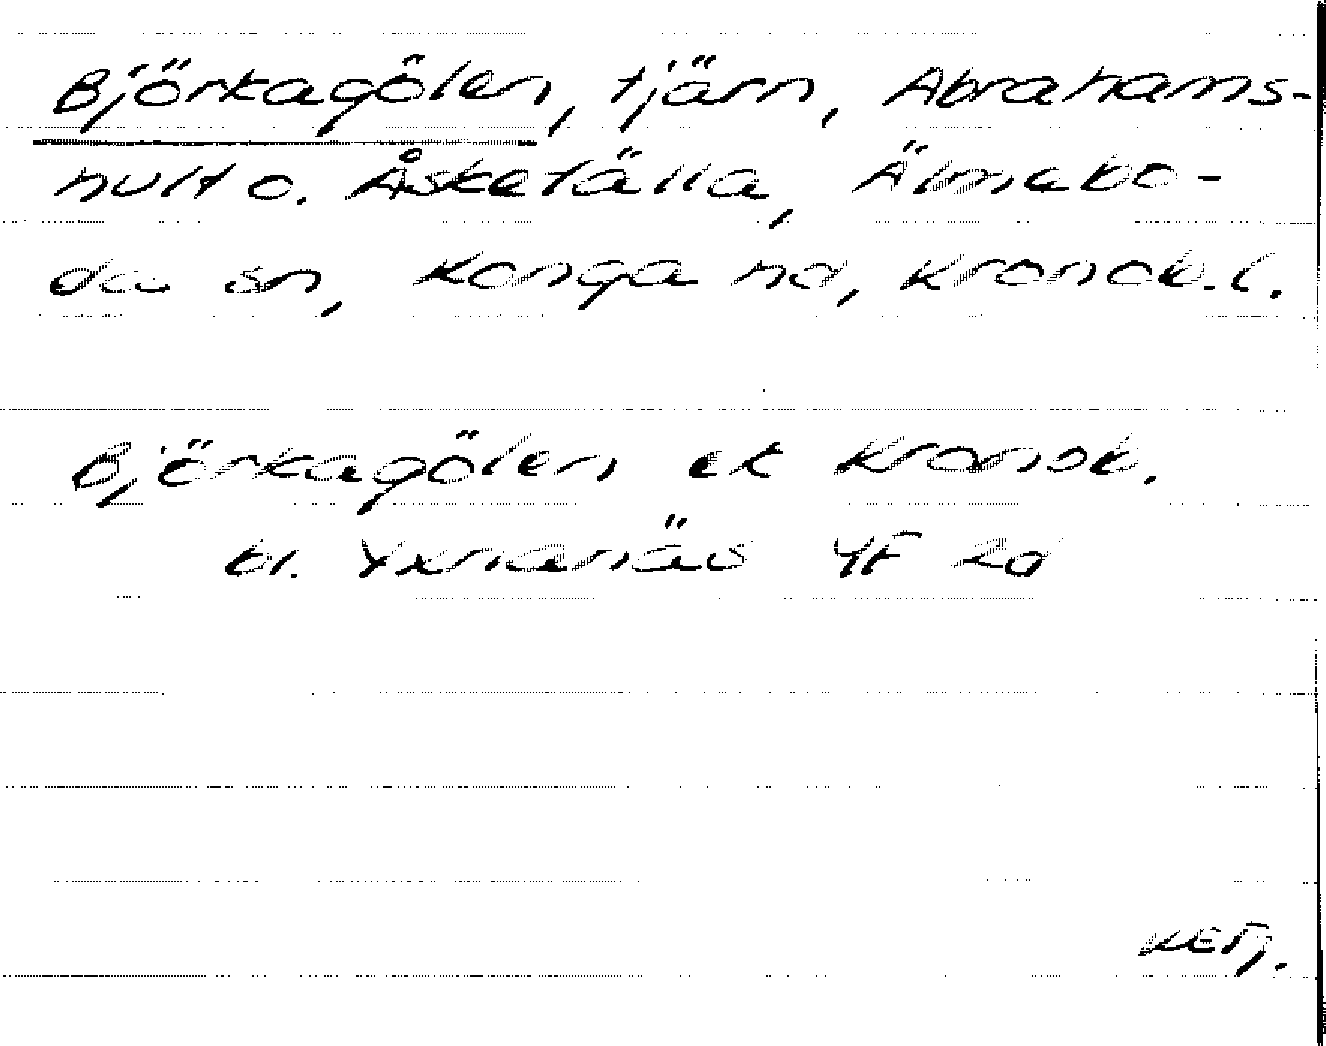 Björkagölen, tjärn, Abrahams-
hult o. Åskefälla, Älmebo-
da sn, Konga hd, Kronob.l.
Björkagölen ek Kronob.
bl. Yxnanäs 4F 2d